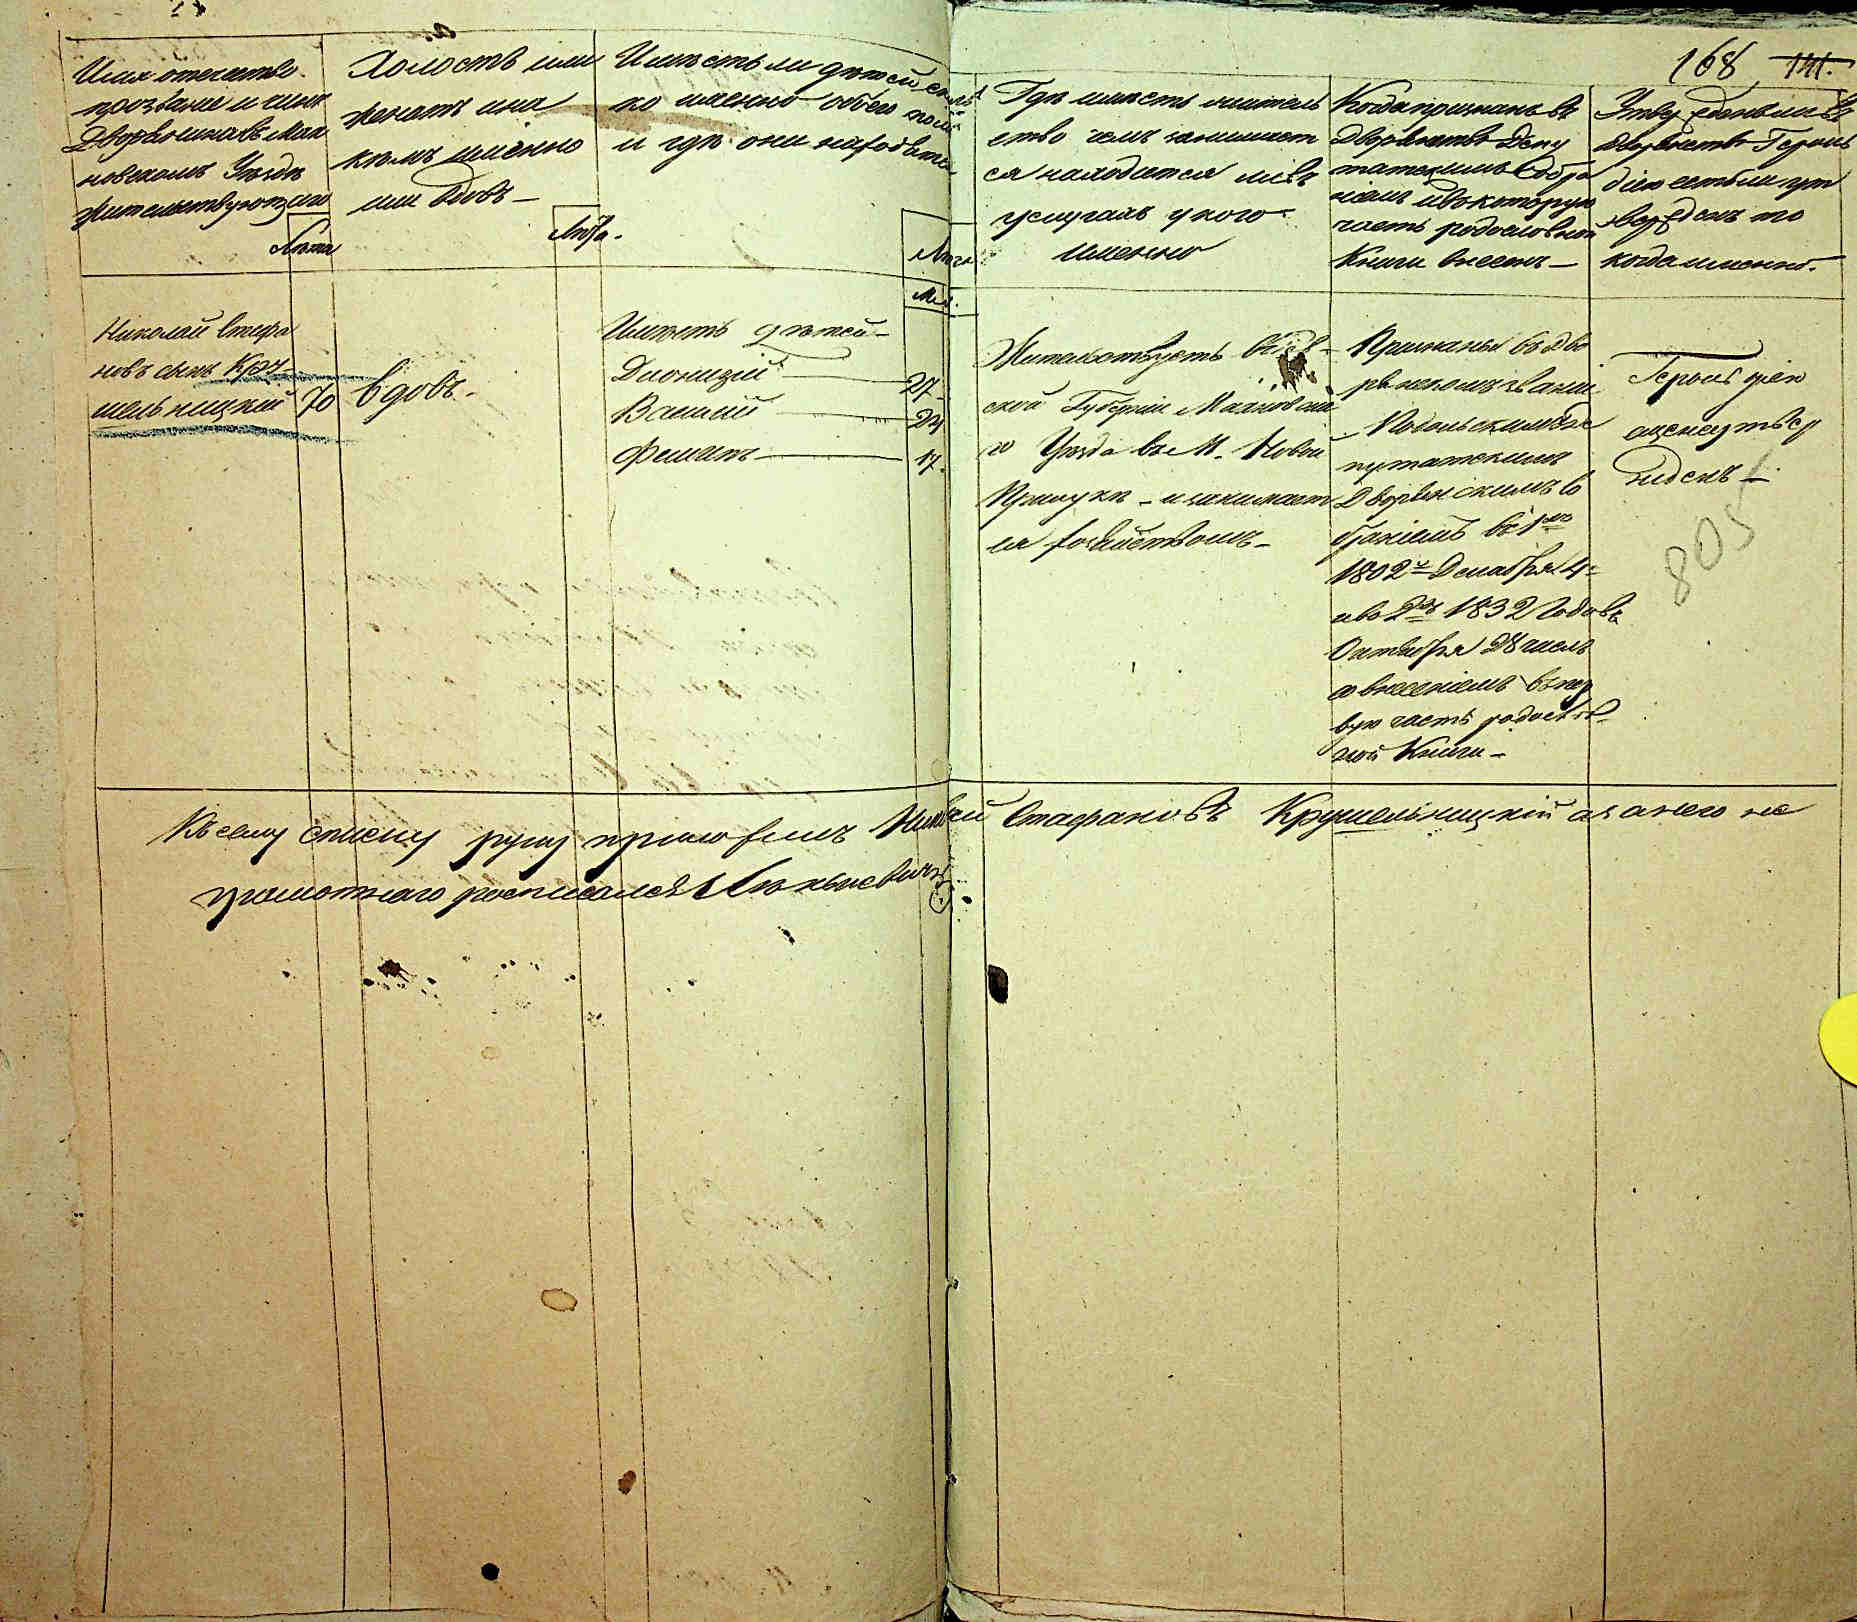 168 141.
Имя отечество
прозвание и чинъ
Дворянина въ Мах
новскомъ Уѣздѣ
жительствующаго
Лѣта
Холостъ или
женатъ и на
комъ именно
или вдовъ —
Лѣта.
Имѣетъ ли дѣтей
по именно обоего пола
и гдѣ они находятся
Лѣта
Муж.
Гдѣ имѣетъ житель
ство чемъ занимает
ся находится ли въ
услугахъ у кого
именно
Когда признанъ въ
Дворянствѣ Депу
татскимъ Собра
ніемъ и въ которую
часть родословной
Книги внесенъ —
Утвержденъ ли въ
дворянствѣ Героль
діею естьли ут
вержденъ то
когда именно.
Николай Стефа
новъ сынъ Кру
шельницкій
70
вдовъ.
Имѣетъ дѣтей —
Дионизій 27
Василій 24
Филипъ 17.
Жительствуетъ въ
ской Губерніи Махновска
го Уѣзда въ М. Новой
Прилукѣ — и занимает
ся хозяйствомъ —
Признанъ въ дво
рянскомъ званіи
Подольскимъ Де
путатскимъ
Дворянскимъ Со
браніемъ въ 1мъ
1802го Декабря 4
и во 2мъ 1832 Годовъ
Октября 28 числъ
со внесеніемъ въ пер
вую часть родослов
ной Книги —
Героль
805
Къ сему списку руку приложилъ Николай Стефановъ Крушельницкій а за него не
грамотнаго росписался